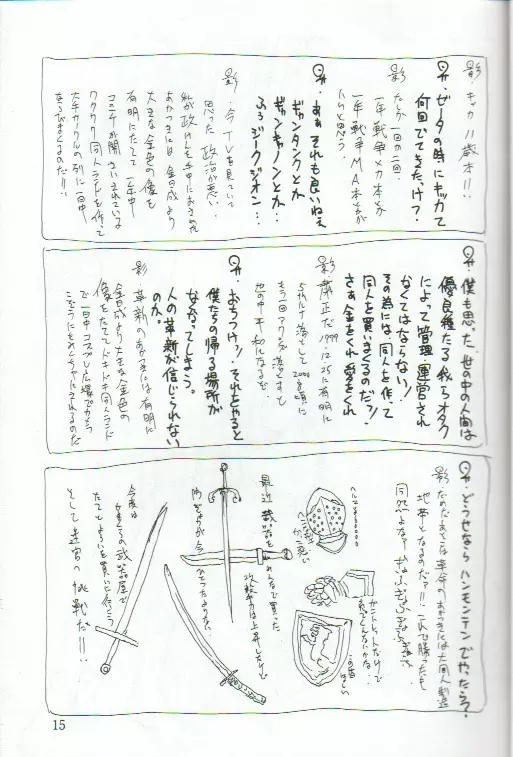 影・キッカ11歳本!!
日・ゼータの時にキッカって
何回でてきたっけ?
影・たしか一回か二回。
一年戦争メカ本とか
一年戦争MA本とか
日・あぁそれも良いねぇ
ギャンタンクとか
ギャンキャノンとか…
ふろジークジオン…
影・今TVを見ていて
思った 政治が悪い。
私が政けんを手中におさめた
あかつきには金日成より
大きな金色の像を
有明にたてて一年中
コミケが開さいされている
ワクワク同人ランドを作って
大手サークルの列に一日中
日・僕も思った。世の中の人間は
優良種たる我らオタク
によって管理・運営され
なくてはならない!
その為には同人を作って
同人を買いまくるのだッ!
さぁ金をくれ愛をくれ
影・粛正だ1999.12.25に有明に
5thルナ落として2000年頃に
もう一回アクシズ落とすと
世の中キレイになるぞ
日・おちつけッ!それをやると
僕たちの帰る場所が
なくなってしまう。
人の革新が信じられない
のか。
影・革新のあかつきには有明に
金日成より大きな金色の
像をたててドキドキ同人ランド
で一日中コスプレした嬢でかこう
日・どうせならハンモンテンでやったら?
影・
地帯となるのだァ!!これで勝ったも
同然よなァぎふぎふぎふ
ガントレットだけで
この盾
ほしい
最近武器をためこんで買った。
攻撃力は上昇したけど
防ぎょ力が今一あがったようなない。
今度は
武器屋で
たてとよろいを買いに行こう
そして迷宮へ挑戦だ!!
15